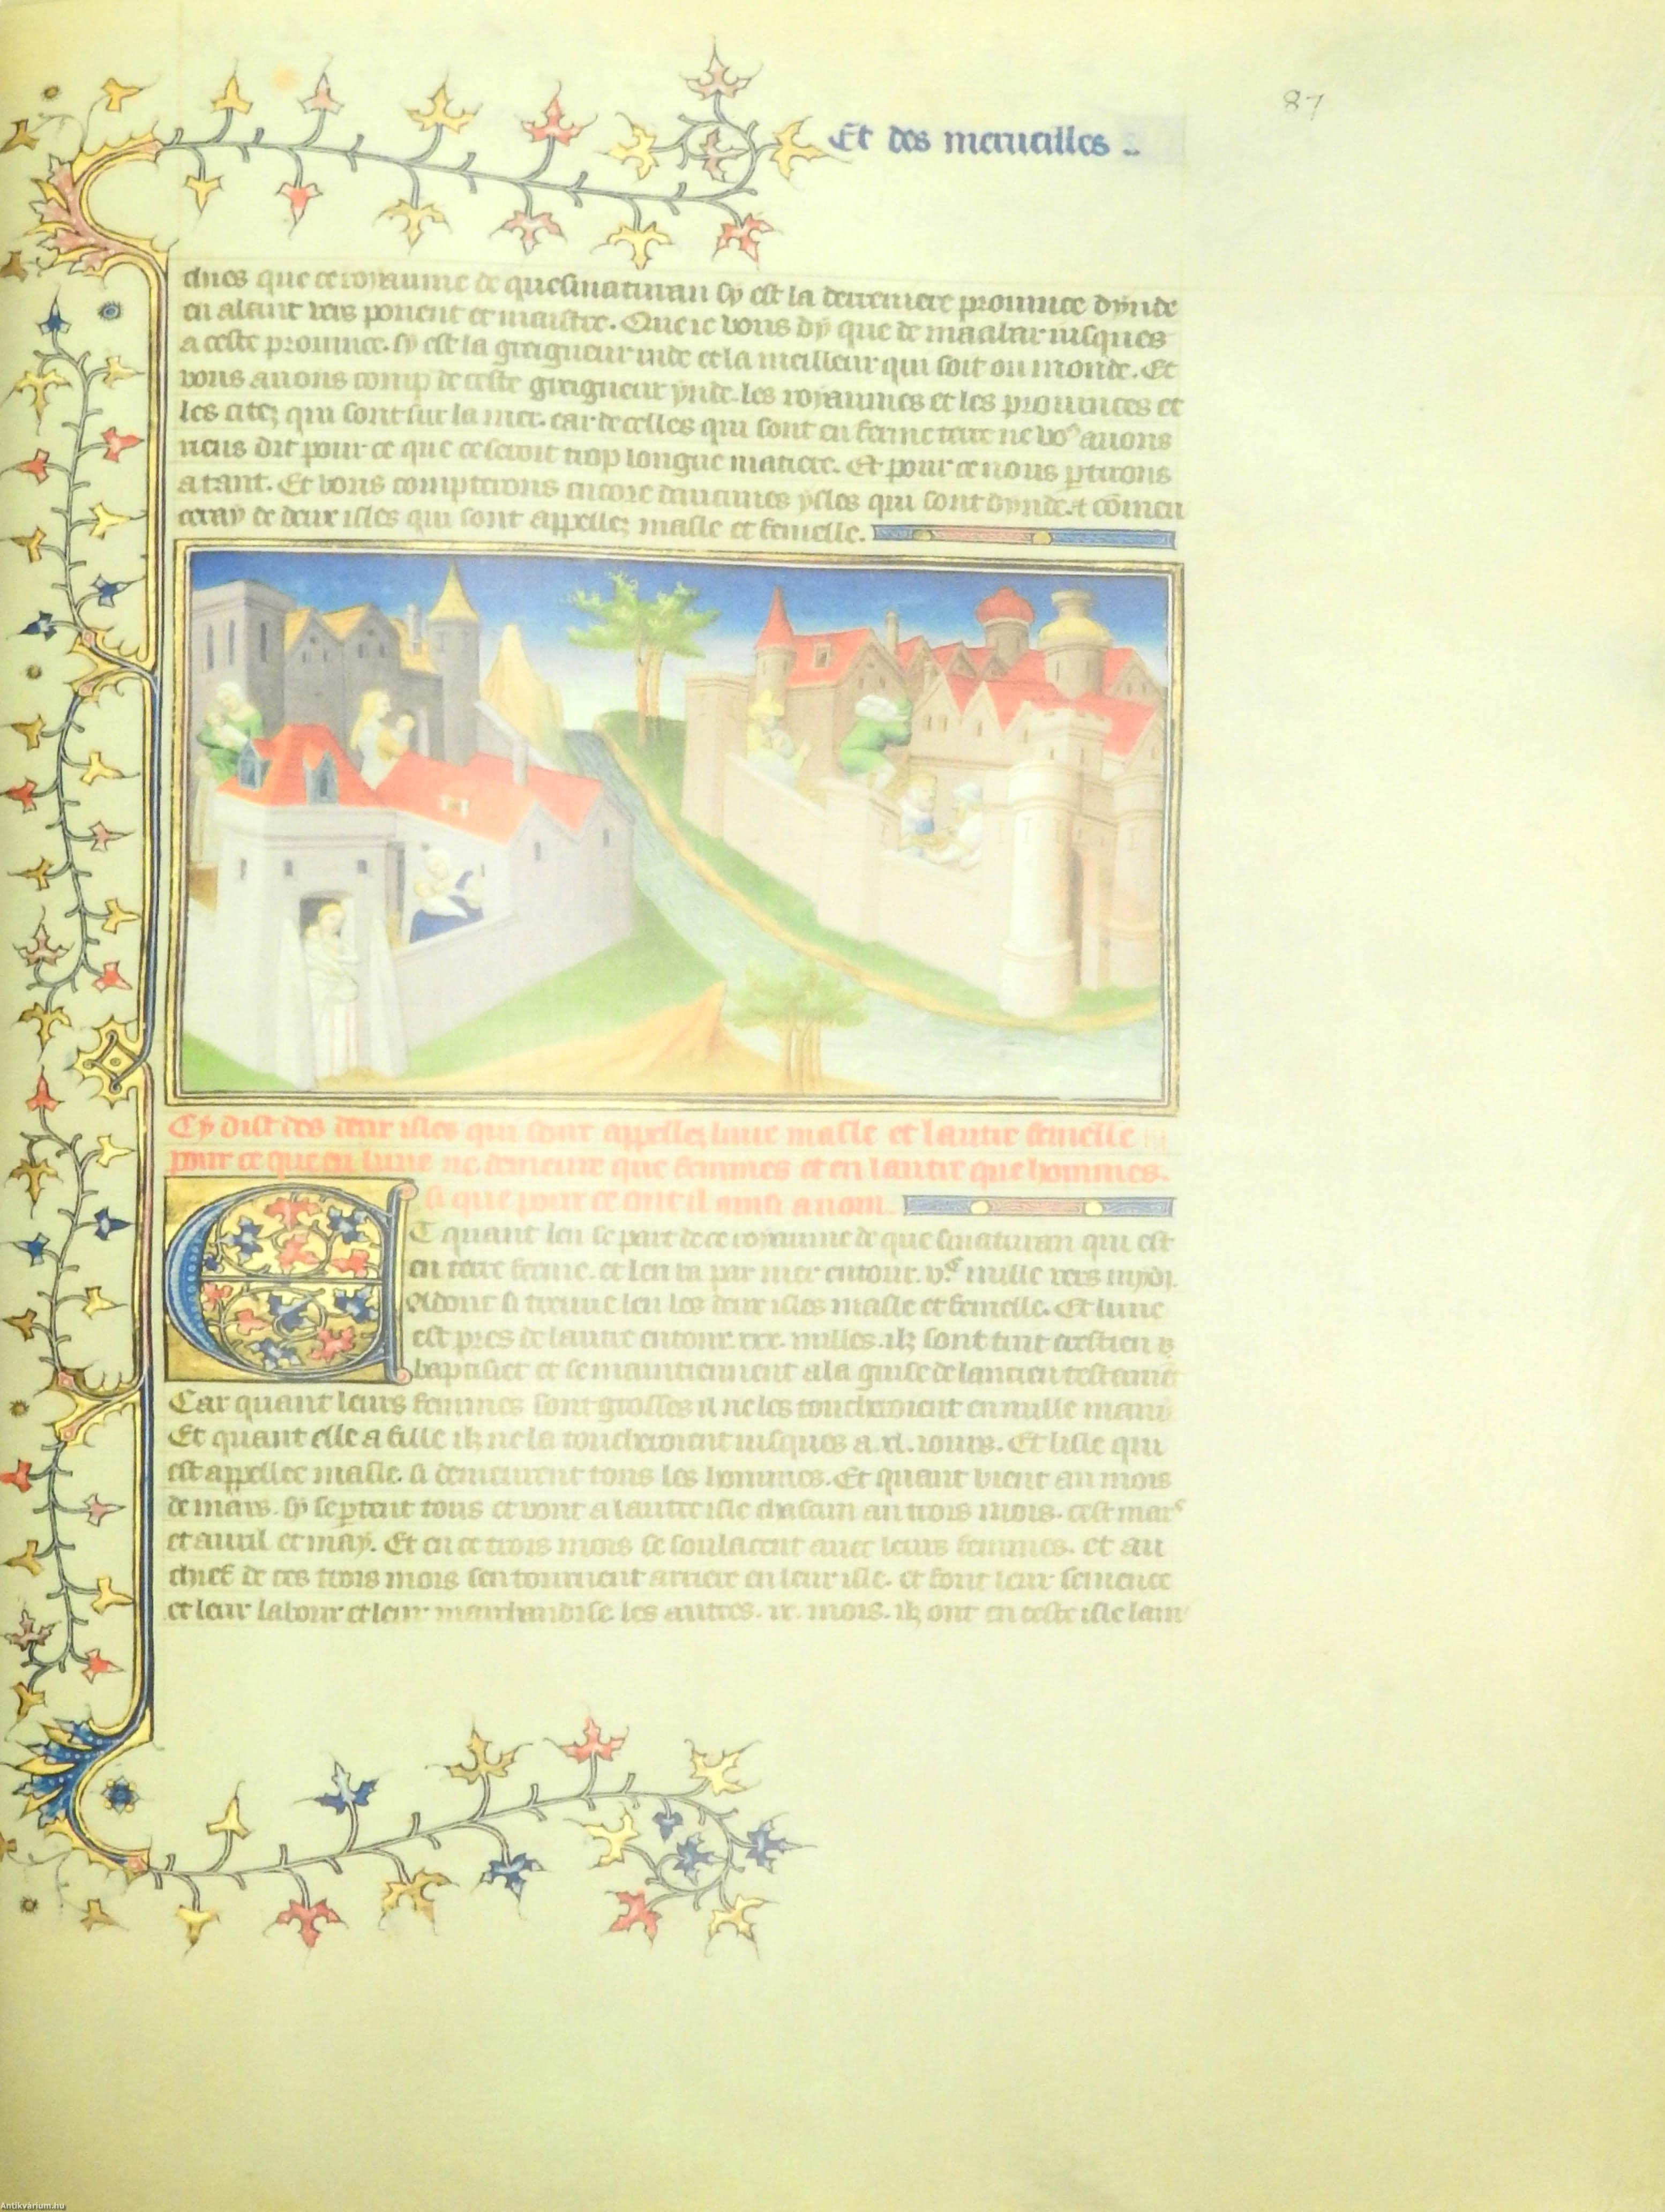 87
Et des merueilles
dues que ce royaume de quesmaturan sy est la derreniere prouince dynde
en alant vers ponent et maistre. Que ie vous dy que de maabar iusques
a ceste prouince. sy est la greigneur inde et la meilleur qui soit ou monde. Et
vous auons comp de ceste greigneur ynde. les royaumes et les prouinces et
les citez qui sont sur la mer. car de celles qui sont en ferme terre ne vo9 auons
riens dit pour ce que ce seroit trop longue matiere. Et pour ce nous ptirons
atant. Et vous compterons encore daucunes ysles qui sont dynde. et comen
ceray de deux isles qui sont appellez masle et femelle.
Cy dist des deux isles qui sont appellez lune masle et lautre femelle
pour ce que en lune ne demeure que femmes et en lautre que hommes.
si que pour ce ont il ainsi a nom.
ET quant len se part de ce royaume de quesmaturan qui est
en terre ferme. et len va par mer entour. v.c mille vers mydi.
Adont si treuue len les deux isles masle et femelle. Et lune
est pres de lautre entour. xxx. milles. ilz sont tint crestien
baptisiet et se maintiennent a la guise de lancien testame
Car quant leurs femmes sont grosses il ne les toucheroient en nulle mani
Et quant elle a fille ilz ne la toucheroient iusques a .xl. iours. Et lisle qui
est appellee masle. si demeurent tous les hommes. Et quant vient au mois
de mars. sy se ptent tous et vont a lautre isle chascun an trois mois. cest mars
et auril et may. Et en ce trois mois se soulacent auec leurs femmes. et au
chief de ces trois mois sen tournent arriere en leur isle. et font leur semence
et leur labour et leur marchandise les autres. ix. mois. ilz ont en ceste isle lam
Antikvárium.hu